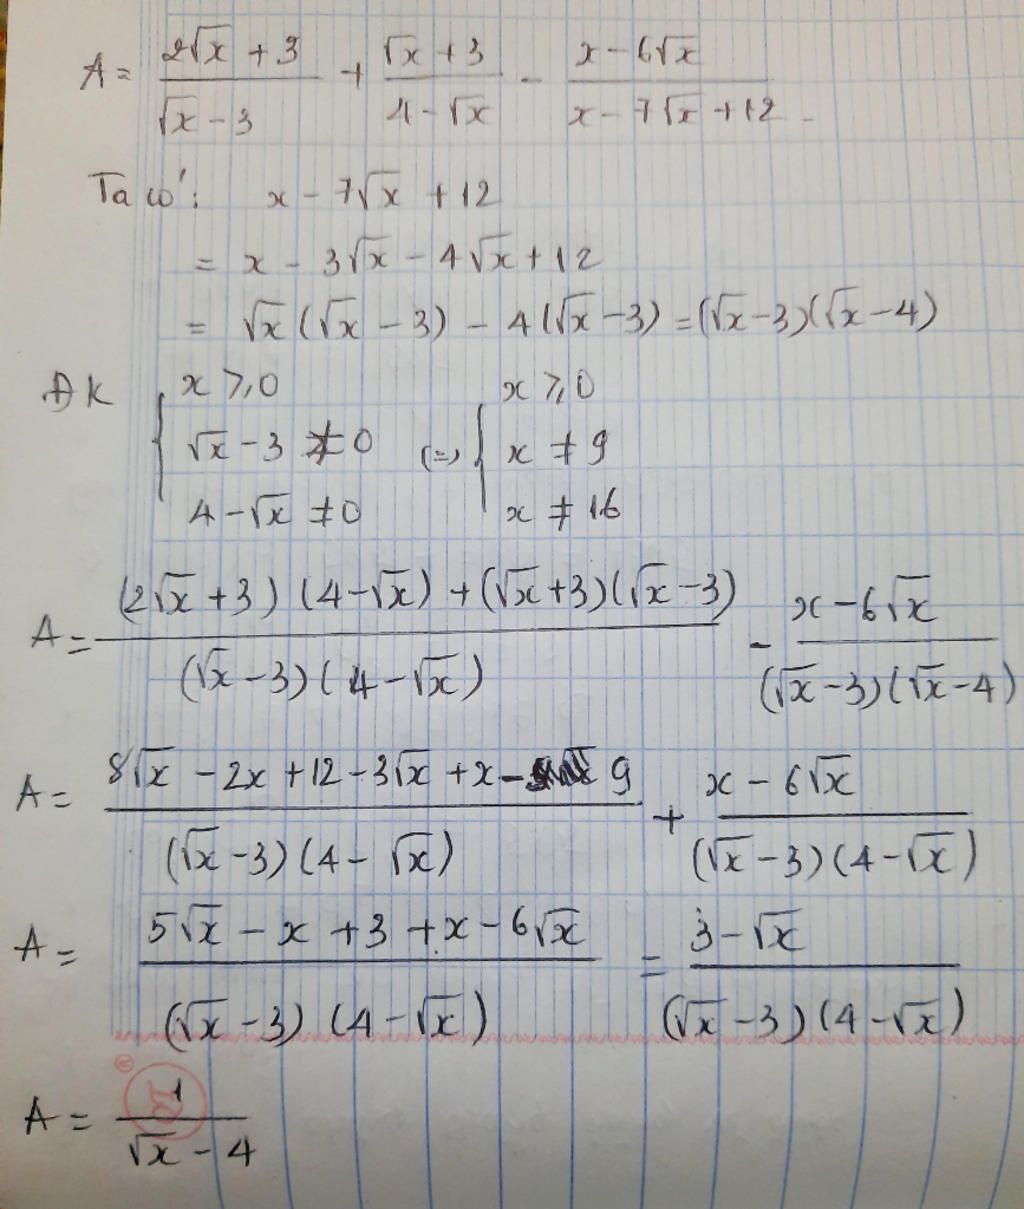 A = (2√x + 3)/(√x - 3) + (√x + 3)/(4 - √x) - (x - 6√x)/(x - 7√x + 12)
Ta có: x - 7√x + 12
= x - 3√x - 4√x + 12
= √x (√x - 3) - 4(√x - 3) = (√x - 3)(√x - 4)
ĐK { x ⩾ 0 ; √x - 3 ≠ 0 ; 4 - √x ≠ 0 (=) { x ⩾ 0 ; x ≠ 9 ; x ≠ 16
A = ((2√x + 3)(4 - √x) + (√x + 3)(√x - 3))/((√x - 3)(4 - √x)) - (x - 6√x)/((√x - 3)(√x - 4))
A = (8√x - 2x + 12 - 3√x + x - 9)/((√x - 3)(4 - √x)) + (x - 6√x)/((√x - 3)(4 - √x))
A = (5√x - x + 3 + x - 6√x)/((√x - 3)(4 - √x)) = (3 - √x)/((√x - 3)(4 - √x))
A = 1/(√x - 4)